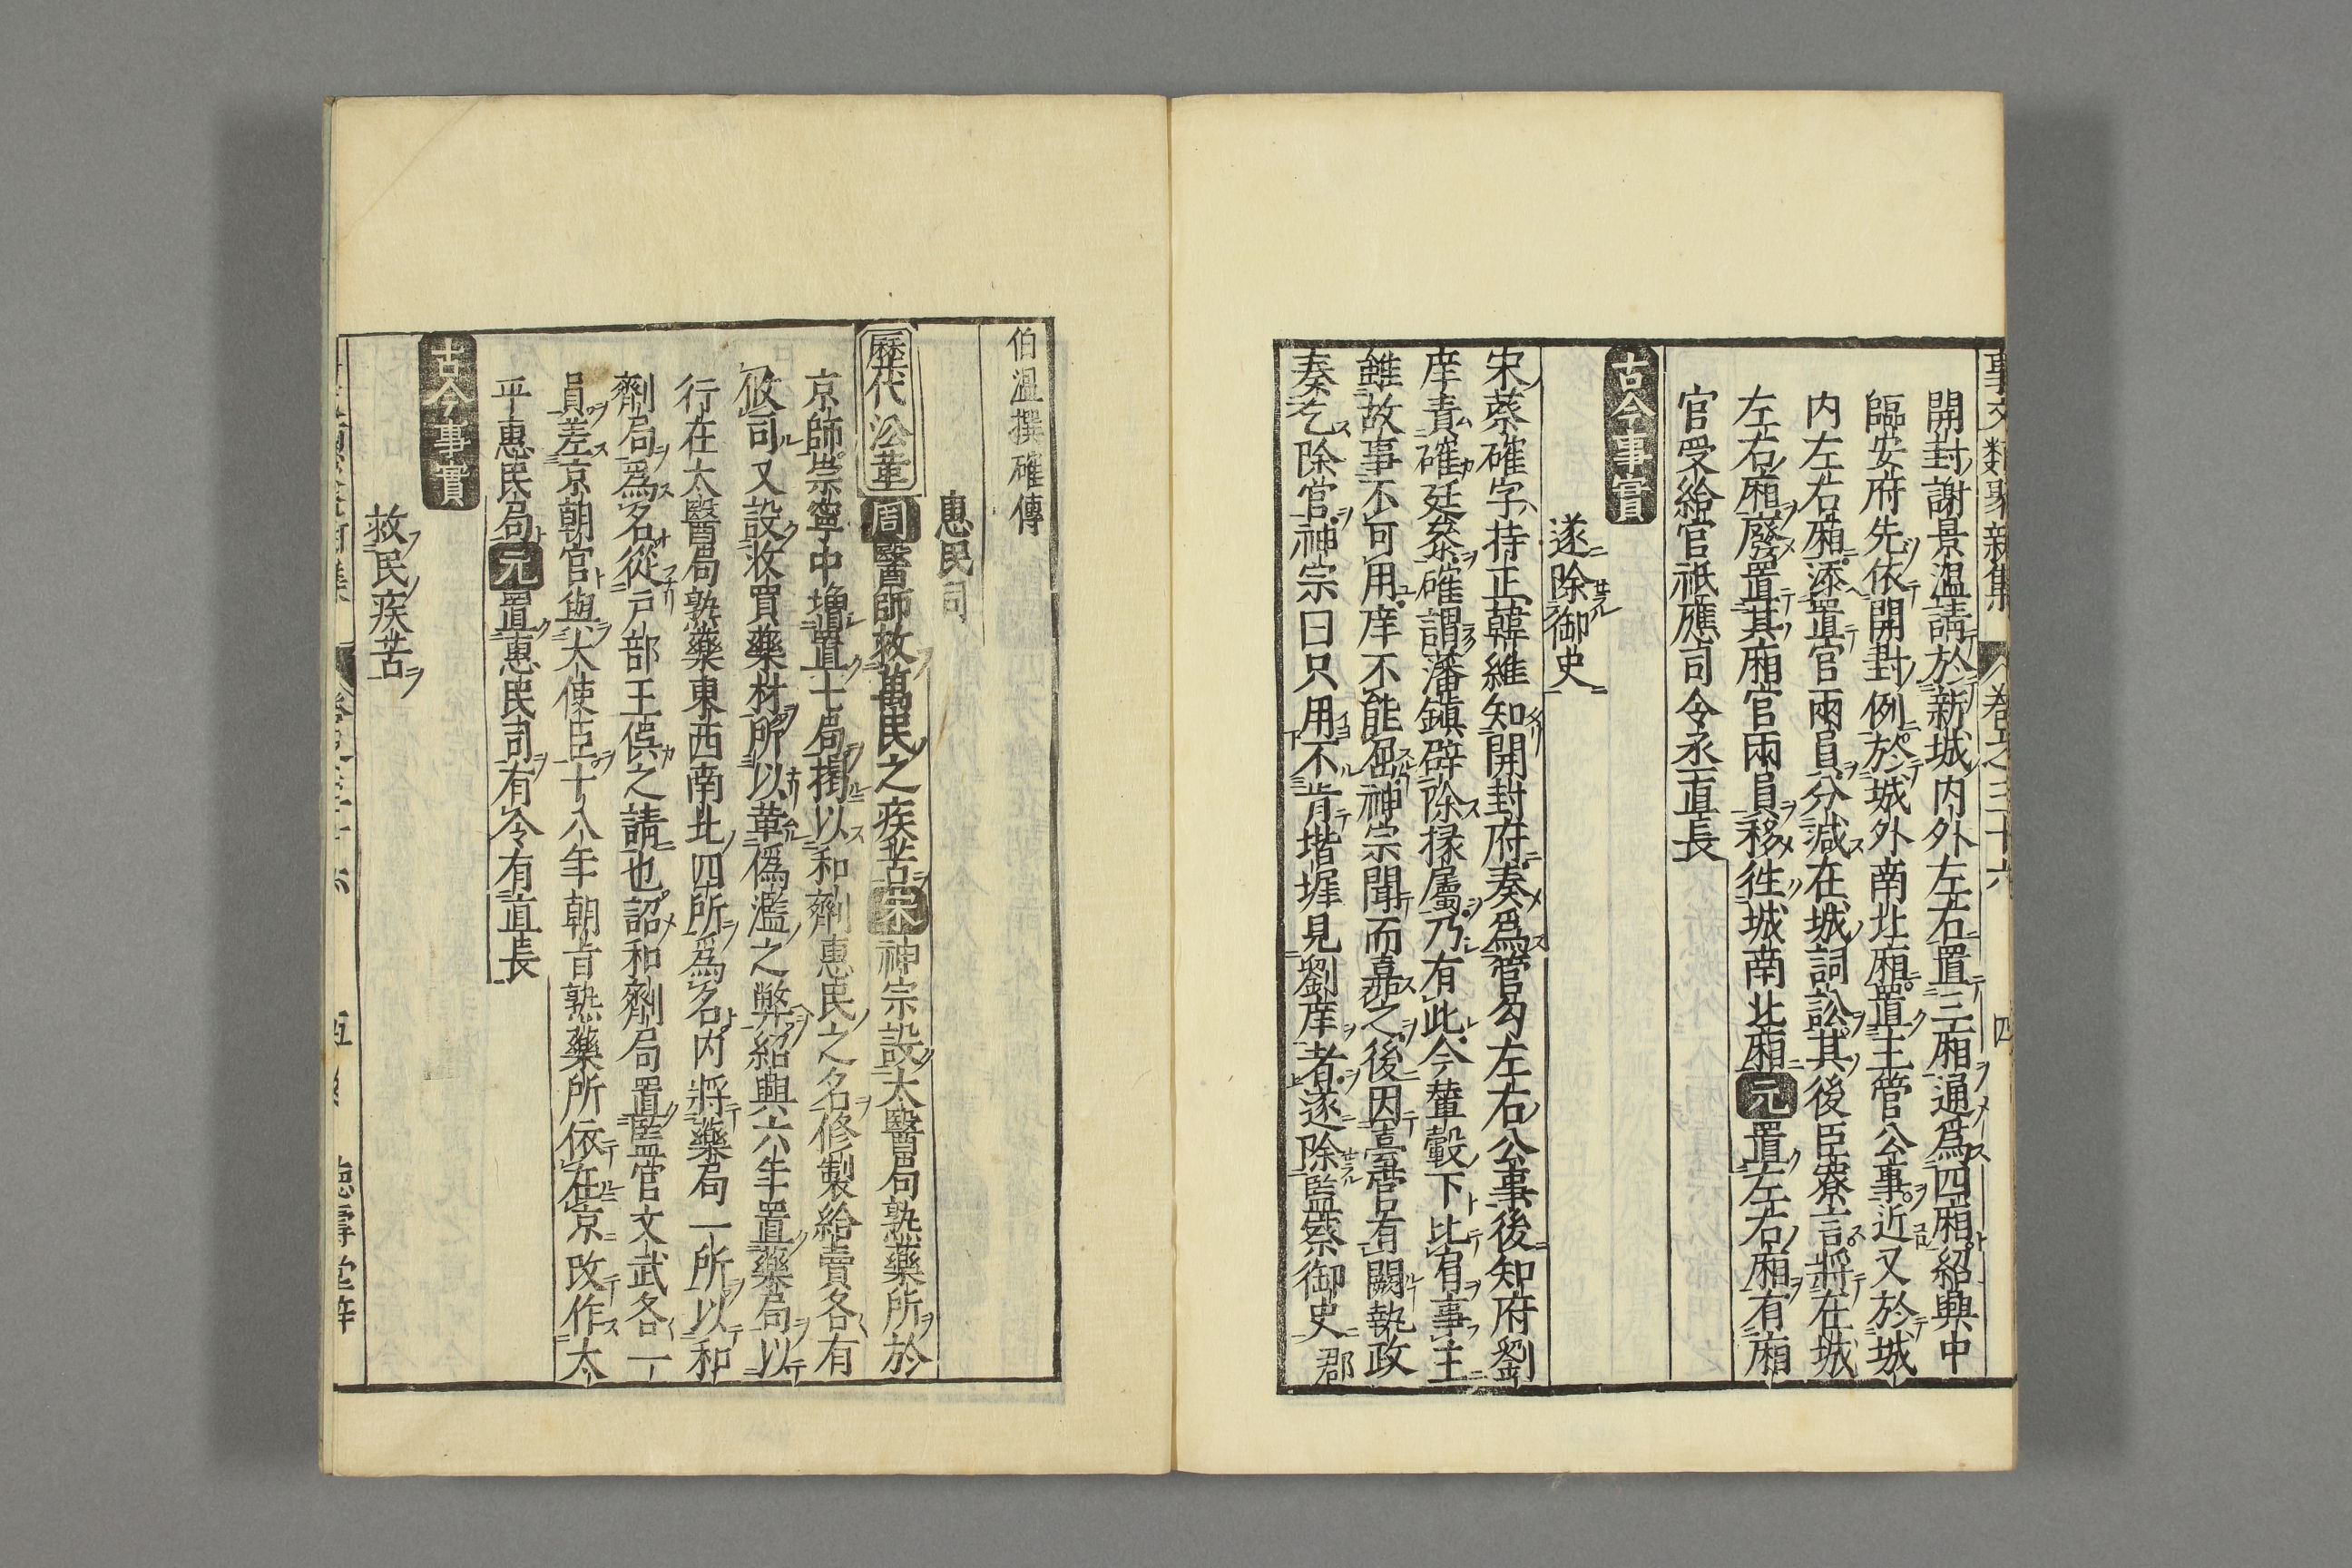 事文類聚新集 卷之三十六 四
開封謝景温請於新城内外左右置三廂通爲四廂紹興中
臨安府先依開封例於城外南北廂置主管公事近又於城
内左右廂添置官兩員分減在城詞訟其後臣寮言將在城
左右廂廢置其廂官兩員移徃城南北廂元置左右廂有廂
官受給官祇應司令丞直長
古今事實
遂除御史
宋蔡確字持正韓維知開封府奏爲管勾左右公事後知府劉
庠責確廷叅確謂藩鎮辟除掾屬乃有此今輦轂下比有事主
雖故事不可用庠不能屈神宗聞而嘉之後因臺官有闕執政
奏乞除官神宗曰只用不肯堦墀見劉庠者遂除監察御史郡
伯温撰確傳
惠民司
歷代沿革周醫師救萬民之疾苦宋神宗設太醫局熟藥所於
京師崇寧中增置七局揭以和劑惠民之名修製給賣各有
攸司又設收買藥材所以革僞濫之弊紹興六年置藥局以
行在太醫局熟藥東西南北四所爲名内將藥局一所以和
劑局爲名從戸部王俁之請也詔和劑局置監官文武各一
員差京朝官與大使臣十八年朝旨熟藥所依在京改作太
平惠民局元置惠民司有令有直長
古今事實
救民疾苦